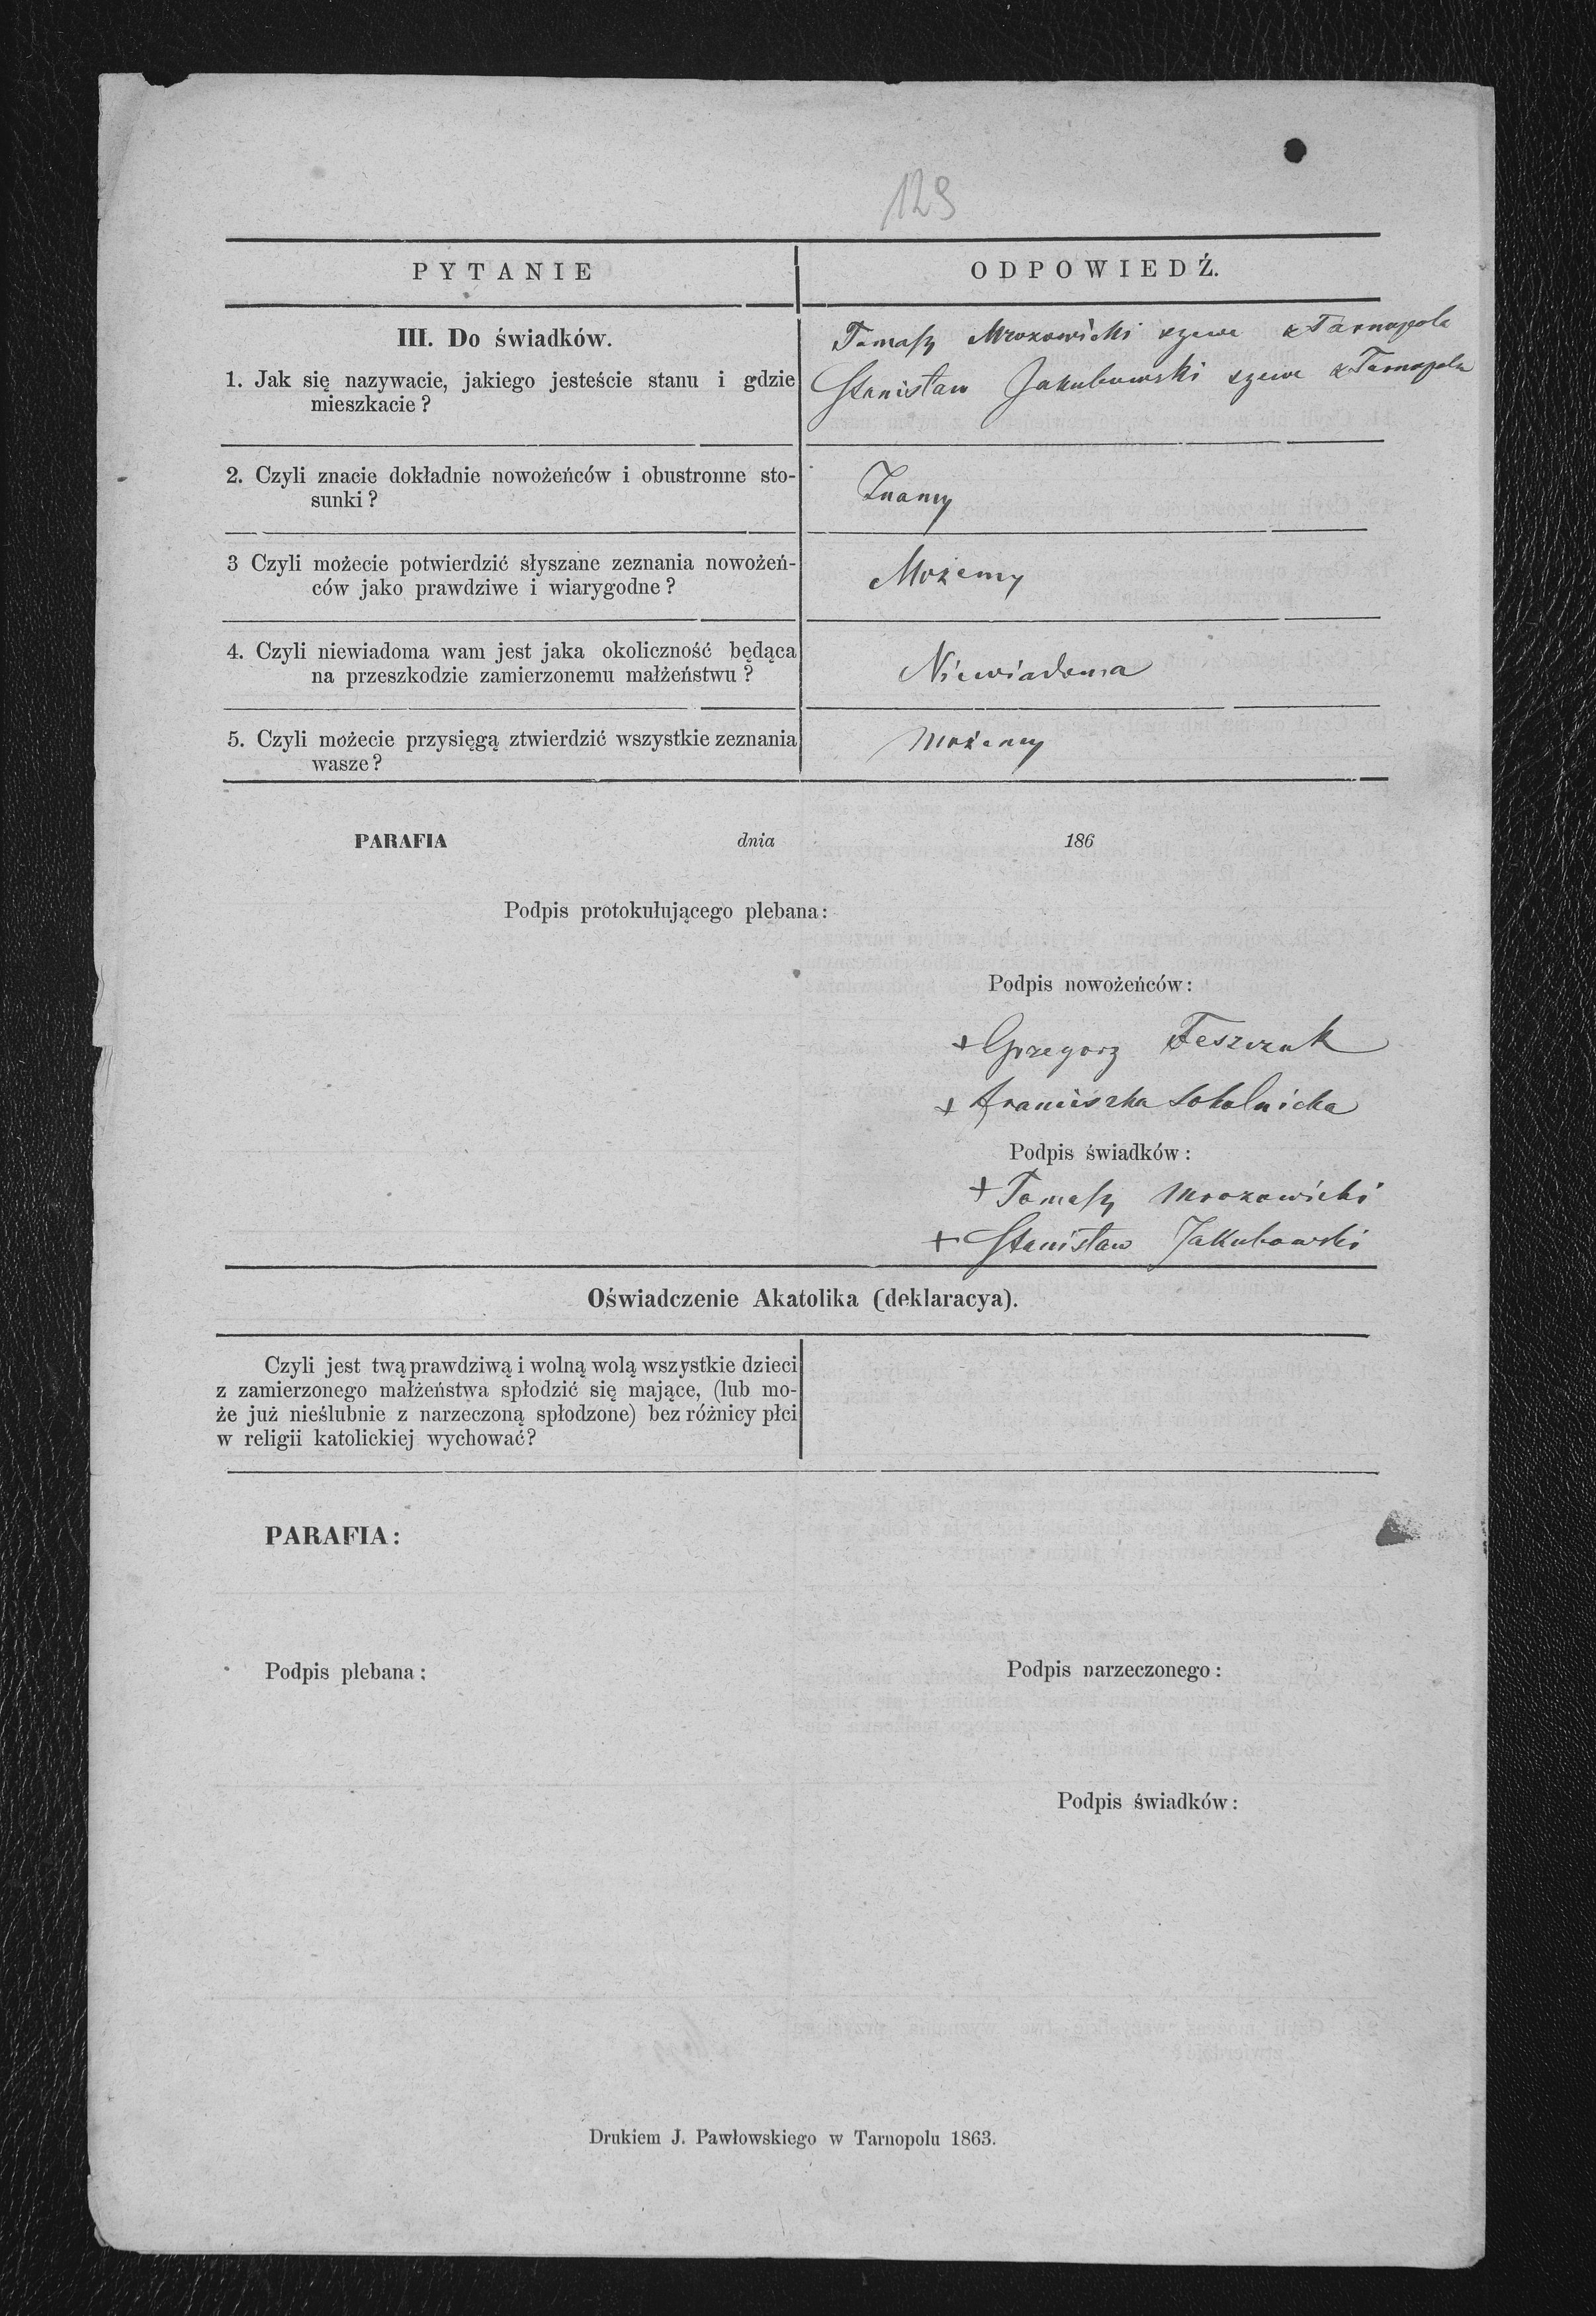 129
PYTANIE
ODPOWIEDŹ.
III. Do świadków.
1. Jak się nazywacie, jakiego jesteście stanu i gdzie
mieszkacie?
Tomasz Mrozowicki szewc z Tarnopola
Stanisław Jakubowski szewc z Tarnopola
2. Czyli znacie dokładnie nowożeńców i obustronne sto-
sunki?
Znamy
3 Czyli możecie potwierdzić słyszane zeznania nowożeń-
ców jako prawdziwe i wiarygodne?
Możemy
4. Czyli niewiadoma wam jest jaka okoliczność będąca
na przeszkodzie zamierzonemu małżeństwu?
Niewiadoma
5. Czyli możecie przysięgą ztwierdzić wszystkie zeznania
wasze?
Możemy
PARAFIA dnia 186
Podpis protokułującego plebana:
Podpis nowożeńców:
+ Grzegorz Feszczuk
+ Franciszka Sokolnicka
Podpis świadków:
+ Tomasz Mrozowicki
+ Stanisław Jakubowski
Oświadczenie Akatolika (deklaracya).
Czyli jest twą prawdziwą i wolną wolą wszystkie dzieci
z zamierzonego małżeństwa spłodzić się mające, (lub mo-
że już nieślubnie z narzeczoną spłodzone) bez różnicy płci
w religii katolickiej wychować?
PARAFIA:
Podpis plebana:
Podpis narzeczonego:
Podpis świadków:
Drukiem J. Pawłowskiego w Tarnopolu 1863.